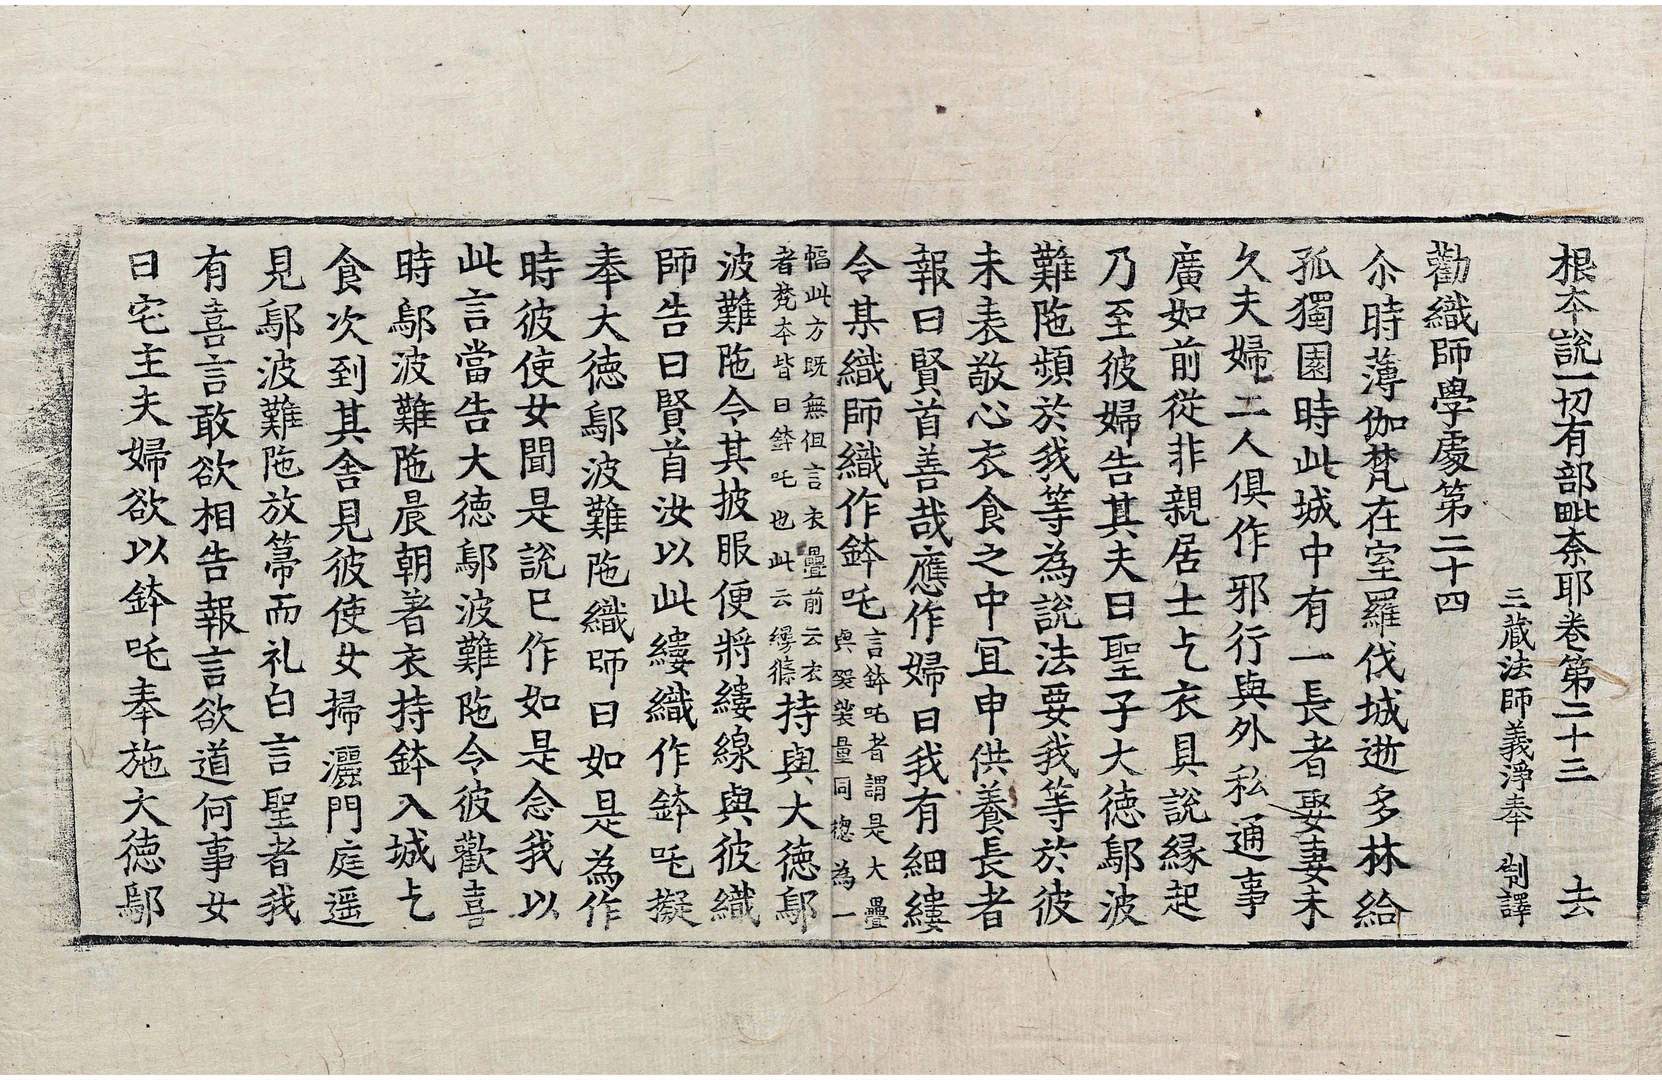 根本說一切有部毗奈耶卷第二十三 去
三藏法師義淨奉 制譯
勸織師學處第二十四
尒時薄伽梵在室羅伐城逝多林給
孤獨園時此城中有一長者娶妻未
久夫婦二人俱作邪行與外私通事
廣如前從非親居士乞衣具說緣起
乃至彼婦告其夫曰聖子大德鄔波
難陁頻於我等為說法要我等於彼
未表敬心衣食之中冝申供養長者
報曰賢首善哉應作婦曰我有細縷
令某織師織作鉢吒言鉢吒者謂是大疊與袈裟量同揔為一
幅此方既無但言衣疊前云衣者梵本皆曰鉢吒也此云縵條持與大德鄔
波難陁令其披服便將縷線與彼織
師告曰賢首汝以此縷織作鉢吒擬
奉大德鄔波難陁織師曰如是為作
時彼使女聞是說已作如是念我以
此言當告大德鄔波難陁令彼歡喜
時鄔波難陁晨朝著衣持鉢入城乞
食次到其舍見彼使女掃灑門庭遥
見鄔波難陁放箒而礼白言聖者我
有喜言敢欲相告報言欲道何事女
曰宅主夫婦欲以鉢吒奉施大德鄔